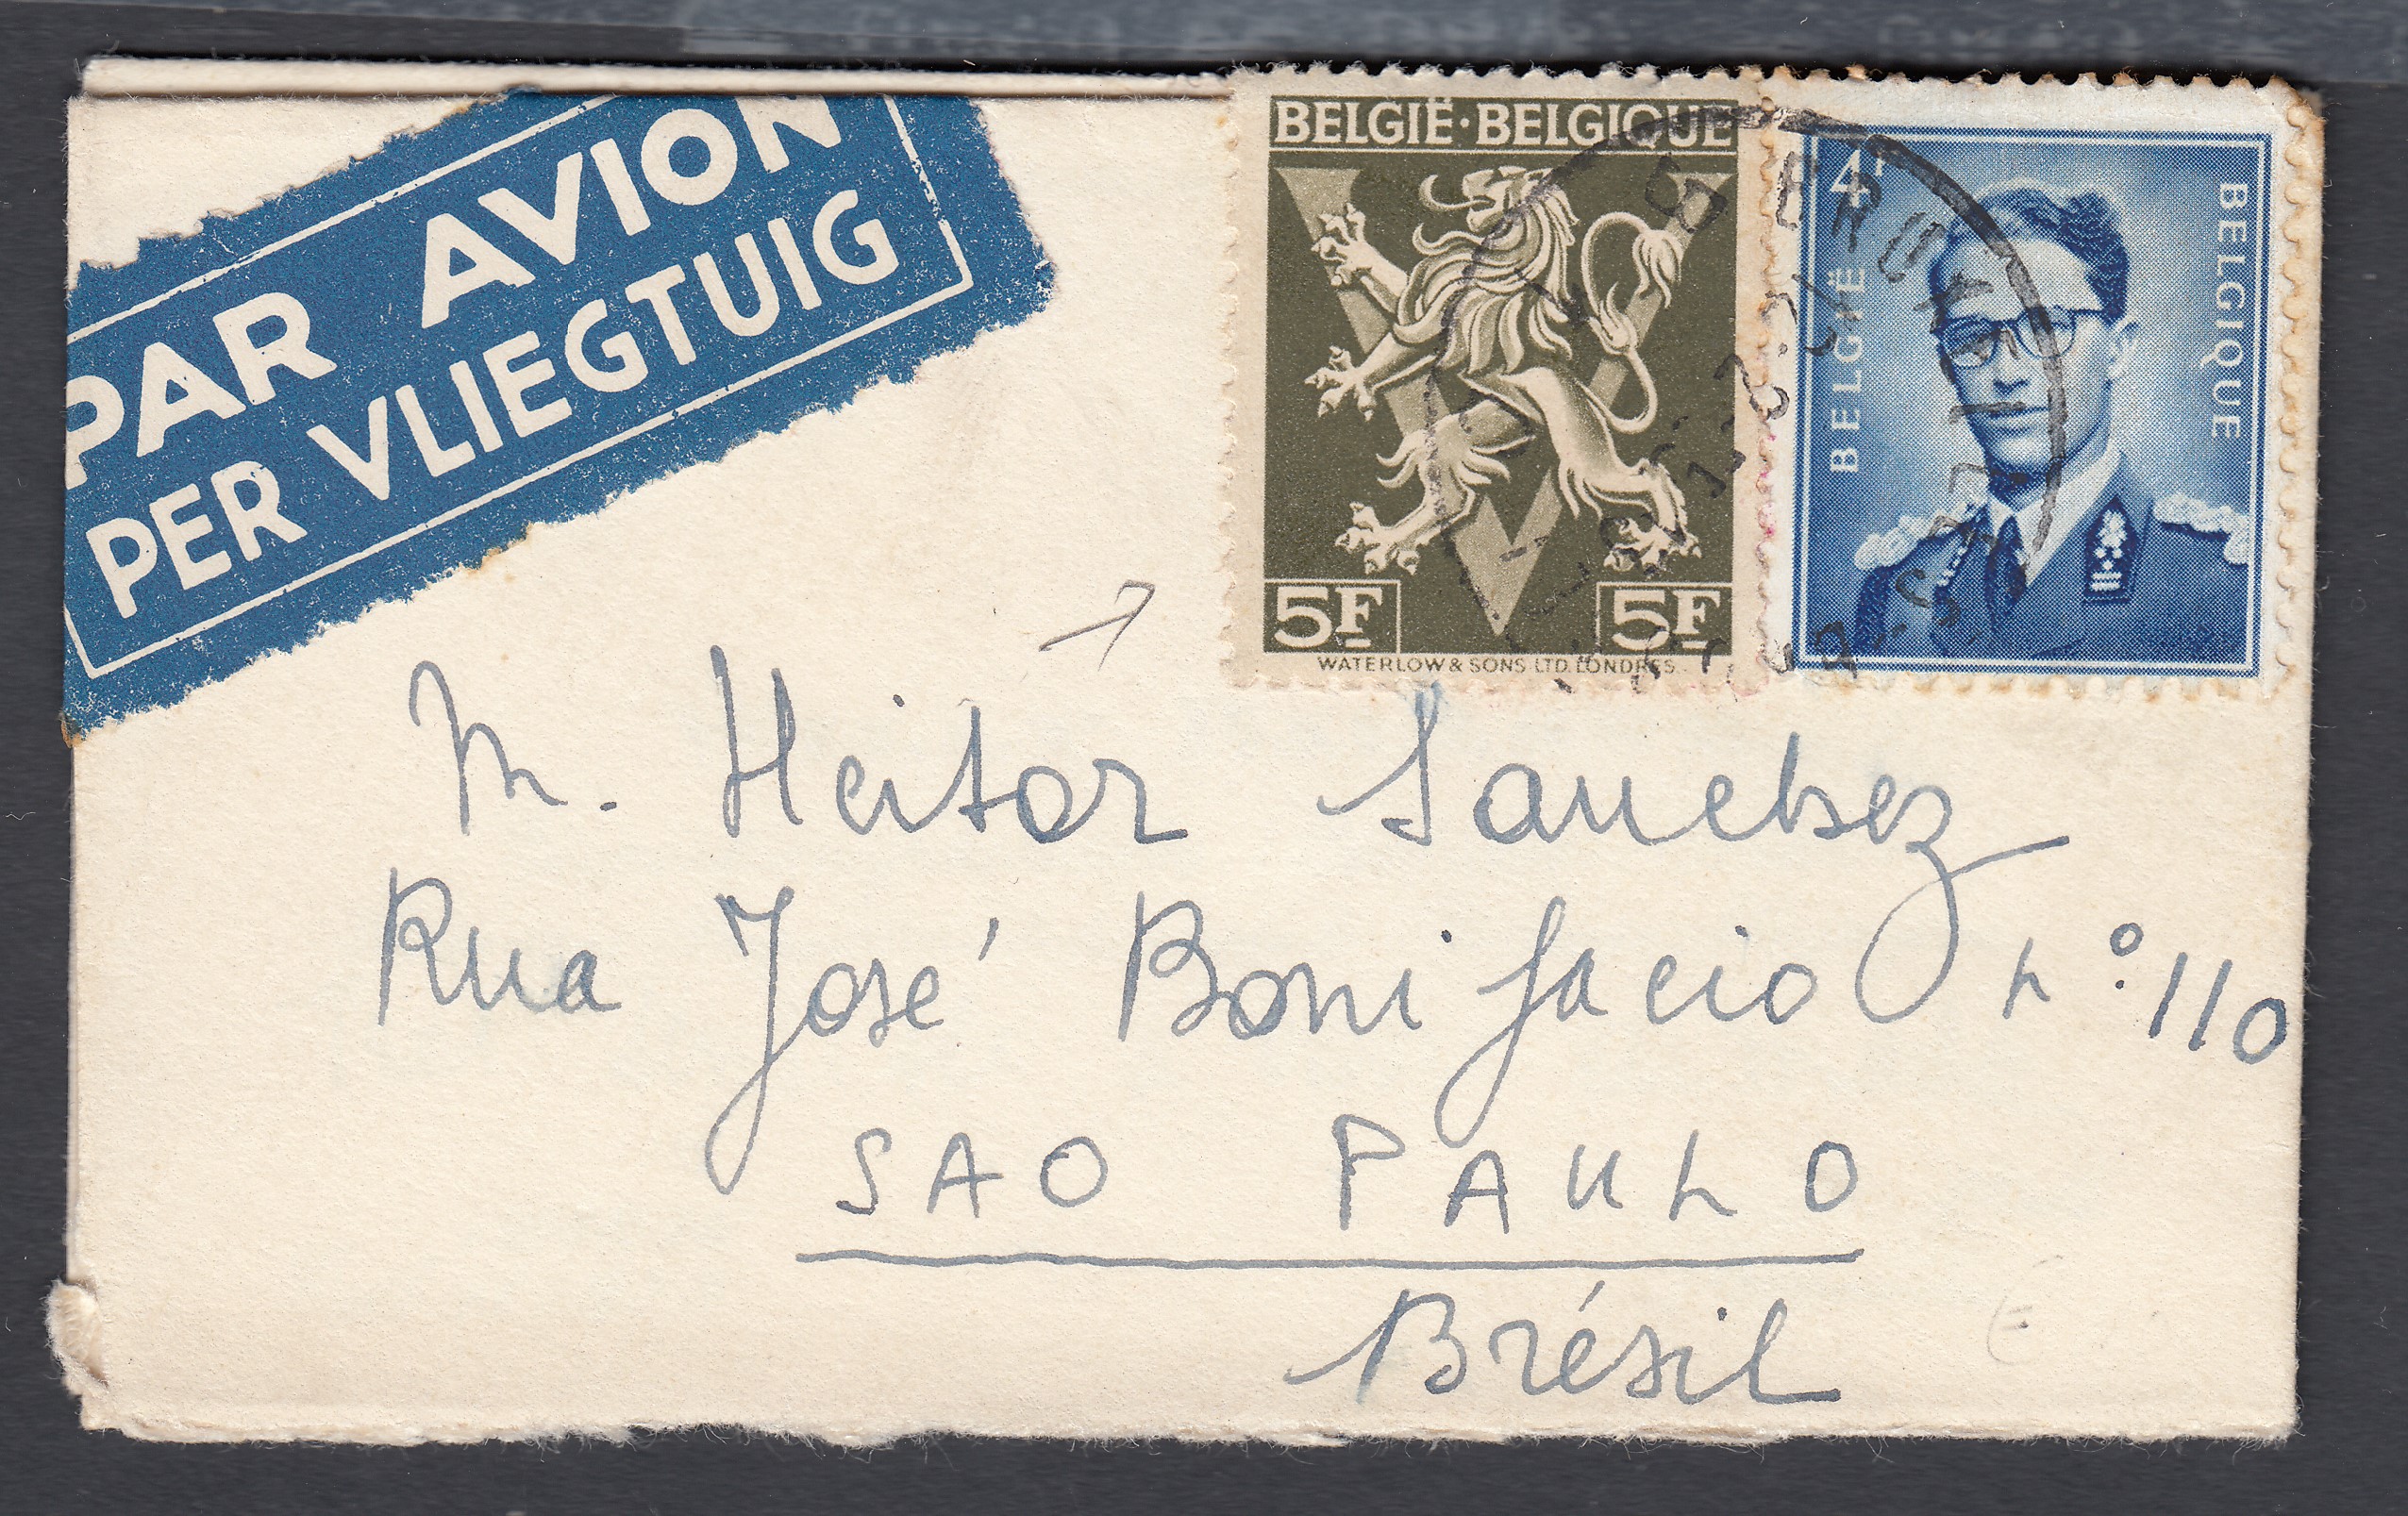 PAR AVION
PER VLIEGTUIG
BELGIË·BELGIQUE
5F 5F
WATERLOW & SONS LTD. LONDRES.
4F
BELGIË
BELGIQUE
M. Heitor Sanchez
Rua José Bonifacio n° 110
SAO PAULO
Brésil